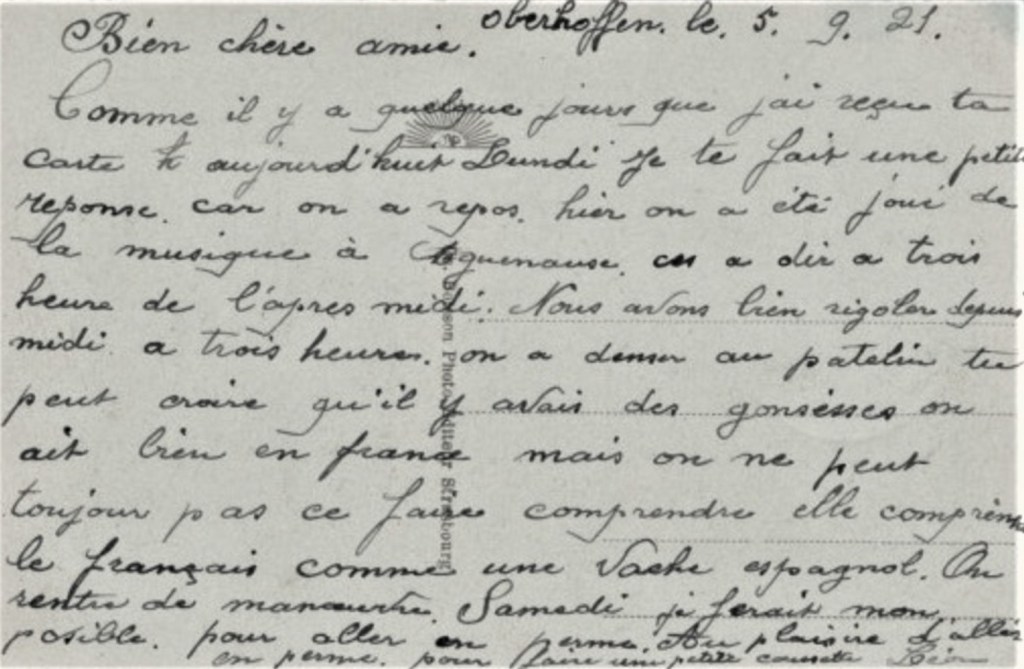 Oberhoffen. le. 5. 9. 21.
Bien chère amie.
Comme il y a quelque jours que jai reçu ta
carte aujourd'huit Lundi Je te fait une petit
reponse. car on a repos. hier on a été joué de
la musique à a dir a trois
heure de l'apres midi. Nous avons bien rigoler depuis
midi a trois heures. on a denser au patelin tu
peut croire qu'il y avais des gonsesses on
ait bien en france mais on ne peut
toujour pas ce faire comprendre elle comprenne
le français comme une Vache espagnol. On
rentre de manœuvre. Samedi je ferait mon
posible. pour aller en perme. Au plaisire d'aller
en perme. pour faire une petite causette
Photo-Editeur Strasbourg